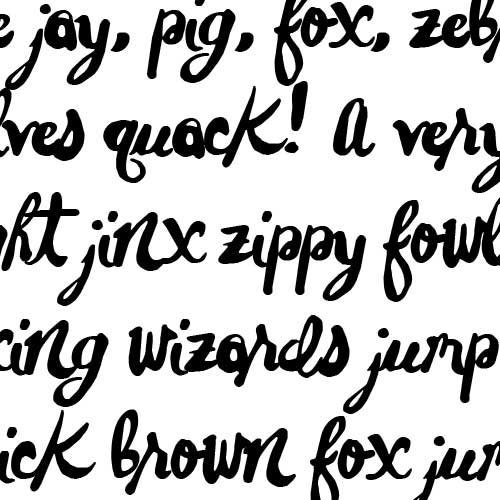 e jay, pig, fox, zeb
lves quack! A very
ght jinx zippy fowl
xing wizards jump
ick brown fox jum